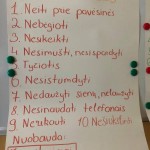 1. Neiti prie pavėsinės
2. Nebėgioti
3. Nesikeikti
4. Nesimušti, nesispardyti
5. Tyčiotis
6. Nesistumdyti
7. Nedaužyti sieną, nelaužyti
8. Nesinaudoti telefonais
9. Nerėkauti 10. Nesiskūsti
Nuobauda: